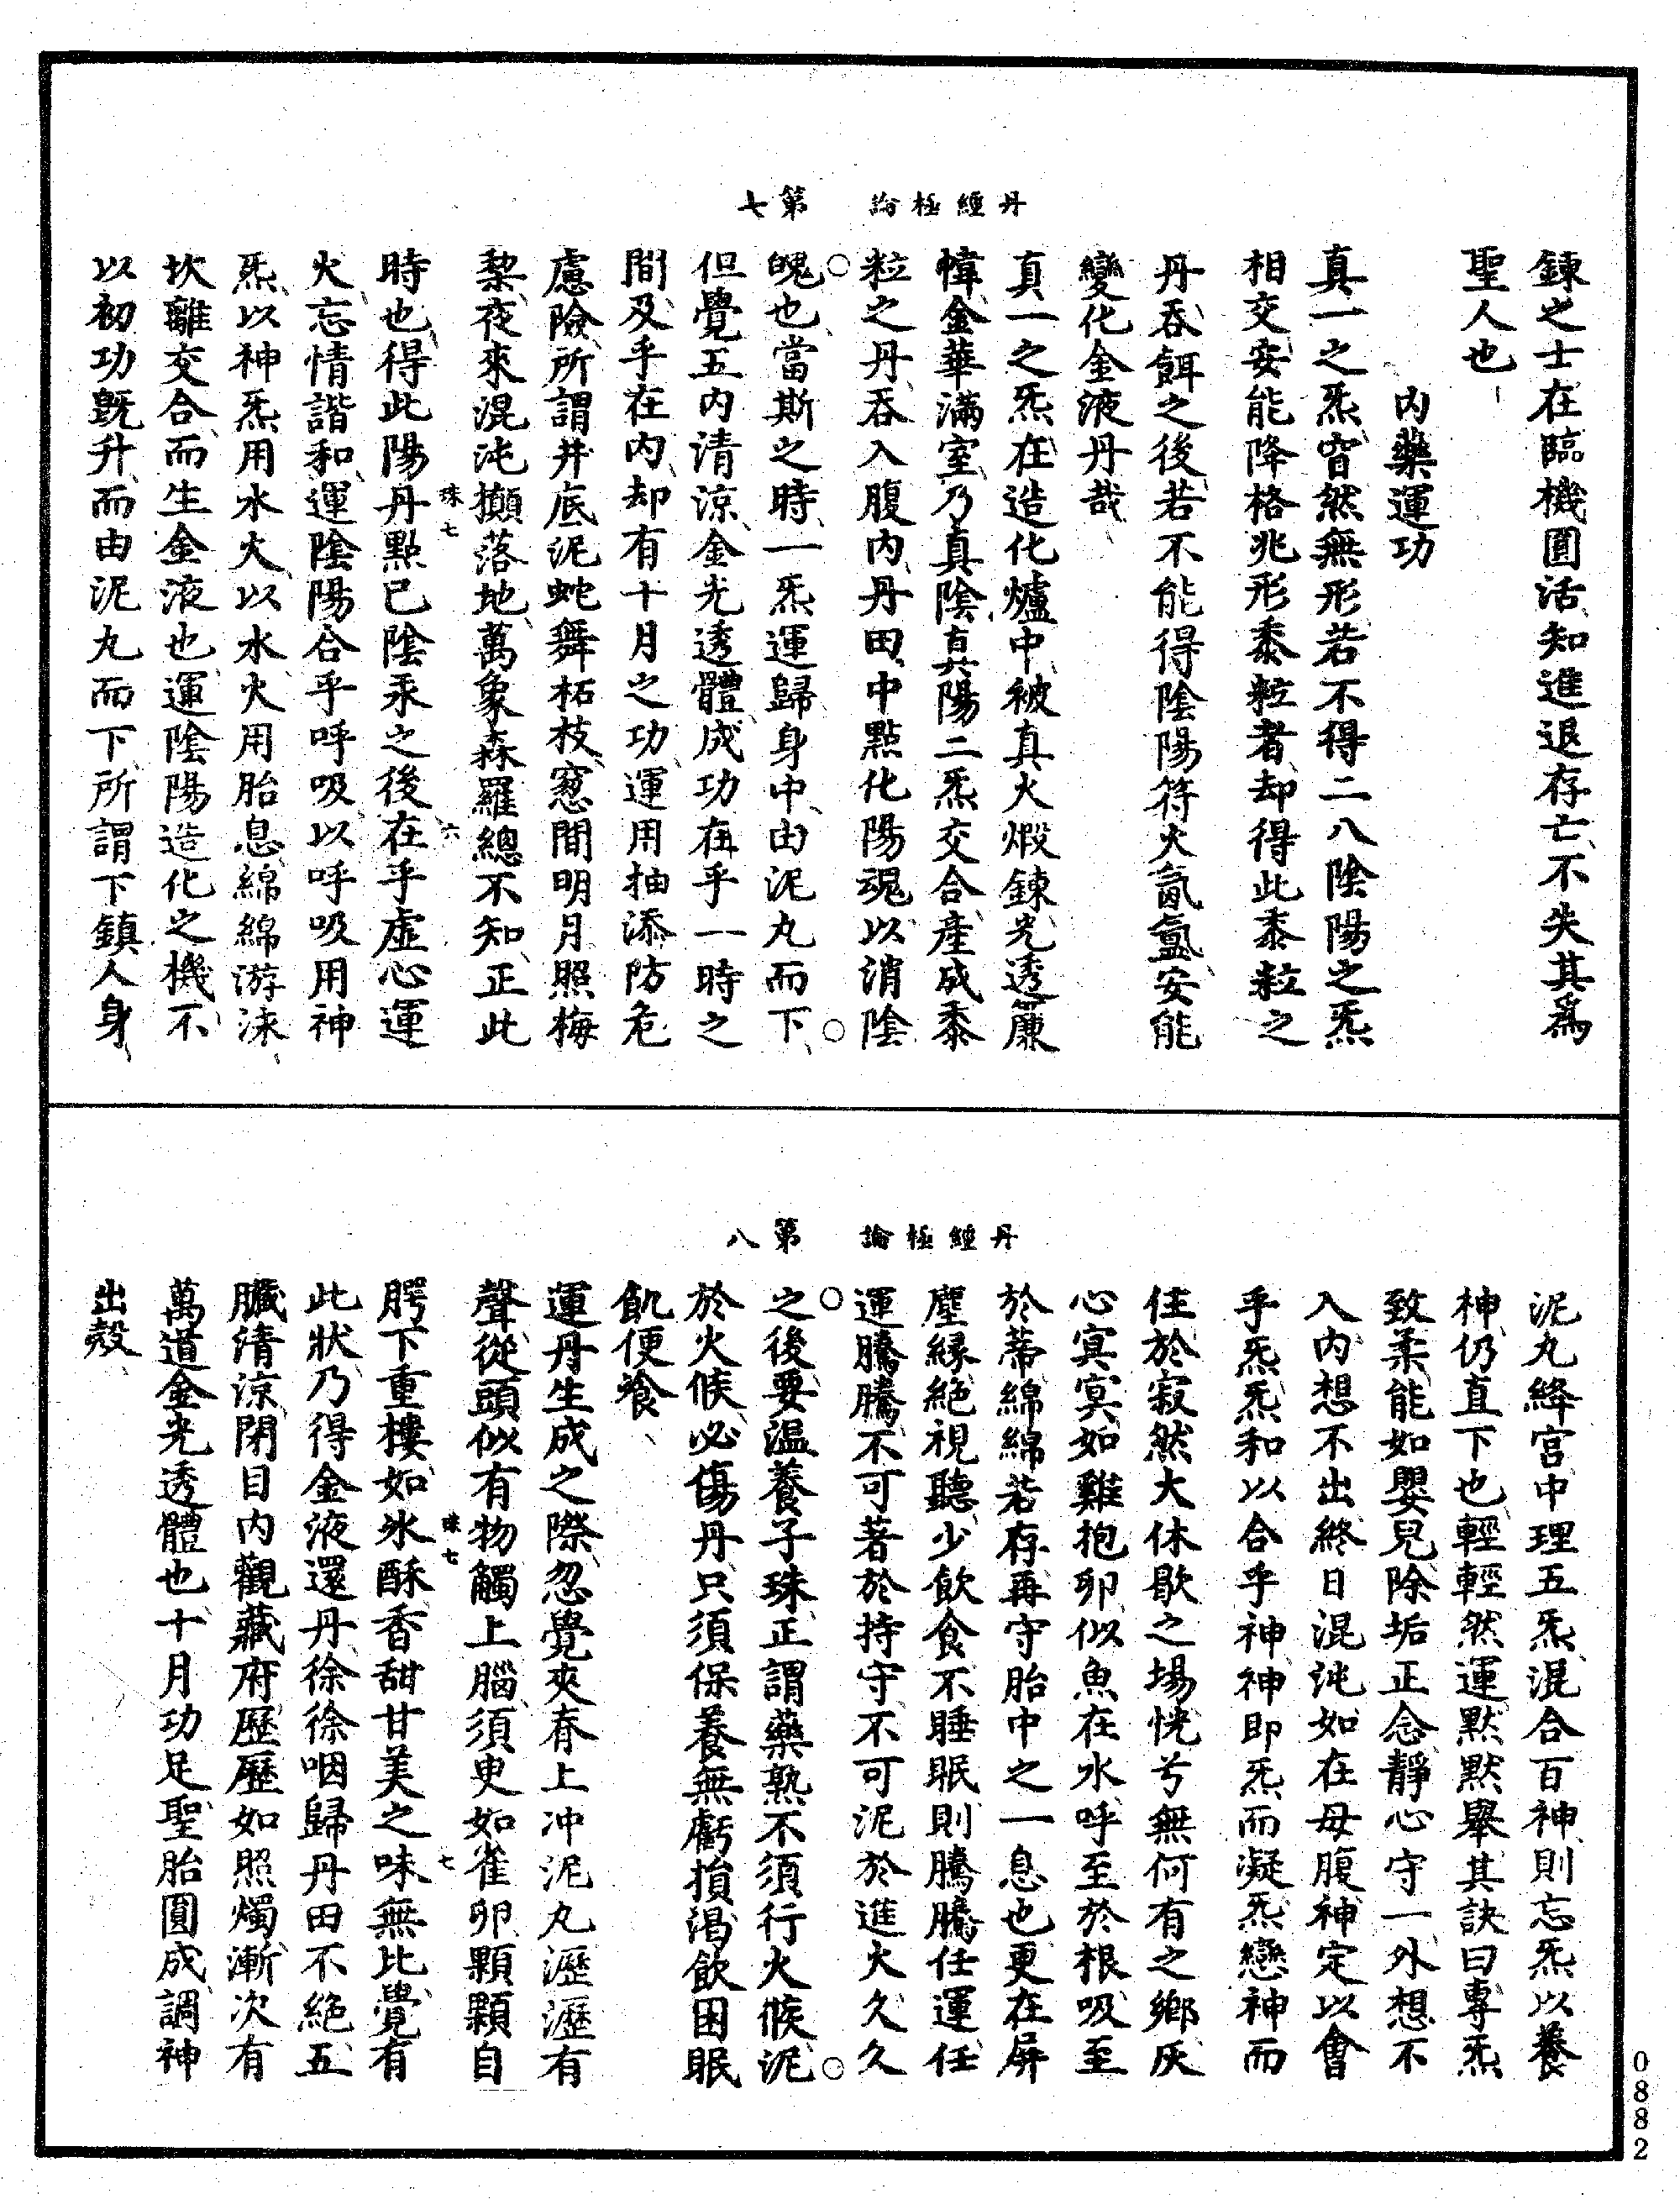 丹經極論　第七
鍊之士在臨機圓活知進退存亡不失其為
聖人也
內藥運功
真一之炁窅然無形若不得二八陰陽之炁
相交安能降格兆形黍粒者却得此黍粒之
丹吞餌之後若不能得陰陽符火氤氳安能
變化金液丹哉
真一之炁在造化爐中被真火煅鍊光透簾
幃金華滿室乃真陰真陽二炁交合產成黍
粒之丹吞入腹內丹田中點化陽魂以消陰
魄也當斯之時一炁運歸身中由泥丸而下
但覺五內清涼金光透體成功在乎一時之
間及乎在內却有十月之功運用抽添防危
慮險所謂井底泥蛇舞柘枝窻間明月照梅
黎夜來混沌攧落地萬象森羅總不知正此
時也得此陽丹點已陰汞之後在乎虛心運
火忘情諧和運陰陽合乎呼吸以呼吸用神
炁以神炁用水火以水火用胎息綿綿游泳
坎離交合而生金液也運陰陽造化之機不
以初功旣升而由泥丸而下所謂下鎮人身
珠七
六
丹經極論　第八
泥丸絳宮中理五炁混合百神則忘炁以養
神仍直下也輕輕然運默默舉其訣曰專炁
致柔能如嬰兒除垢正念靜心守一外想不
入內想不出終日混沌如在母腹神定以會
乎炁炁和以合乎神神即炁而凝炁戀神而
住於寂然大休歇之場恍兮無何有之鄉灰
心冥冥如雞抱卵似魚在水呼至於根吸至
於蒂綿綿若存再守胎中之一息也更在屏
塵緣絕視聽少飲食不睡眠則騰騰任運任
運騰騰不可著於持守不可泥於進火久久
之後要溫養子珠正謂藥熟不須行火候泥
於火候必傷丹只須保養無虧損渴飲困眠
飢便飡
運丹生成之際忽覺夾脊上冲泥丸瀝瀝有
聲從頭似有物觸上腦須臾如雀卵顆顆自
腭下重樓如氷酥香甜甘美之味無比覺有
此狀乃得金液還丹徐徐咽歸丹田不絕五
臟清涼閉目內觀藏府歷歷如照燭漸次有
萬道金光透體也十月功足聖胎圓成調神
出殼
珠七
七
0882